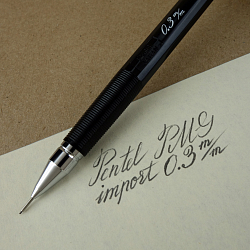 0.3 m/m
Pentel PMG
import 0.3 m/m